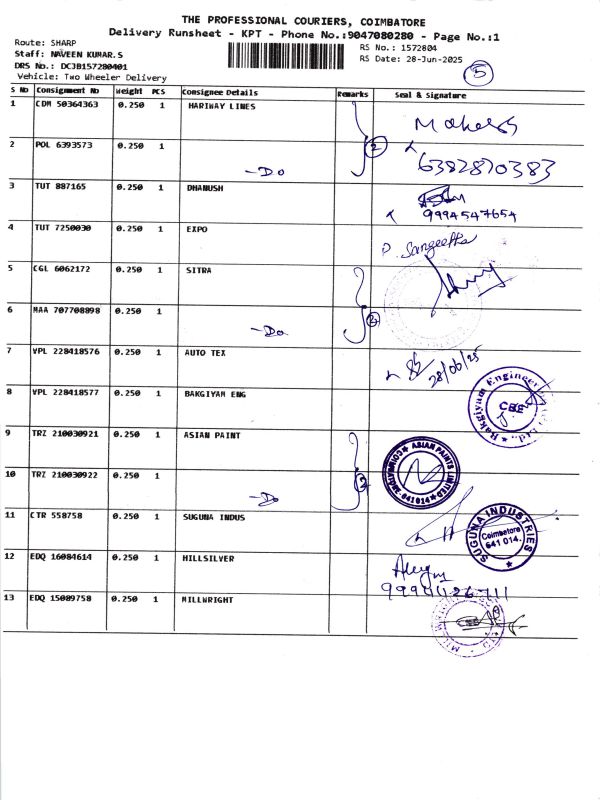 THE PROFESSIONAL COURIERS, COIMBATORE
Delivery Runsheet - KPT - Phone No.:9047080280 - Page No.:1
Route: SHARP
RS No.: 1572804
Staff: NAVEEN KUMAR.S
RS Date: 28-Jun-2025
DRS No.: DCJB157280401
5
Vehicle: Two Wheeler Delivery
S No Consignment No Weight PCS Consignee Details Remarks Seal & Signature
1 CDM 50364363 0.250 1 HARIWAY LINES
2 POL 6393573 0.250 1 -Do 2 6382870383
3 TUT 887165 0.250 1 DHANUSH 9994547654
4 TUT 7250030 0.250 1 EXPO P. Sangeetha
5 CGL 6062172 0.250 1 SITRA
6 MAA 707708898 0.250 1 -Do 2
7 VPL 228418576 0.250 1 AUTO TEX 28/06/25
8 VPL 228418577 0.250 1 BAKGIYAM ENG
Bakgiyam Engineer
CBE
9 TRZ 210030921 0.250 1 ASIAN PAINT
ASIAN PAINTS LIMITED
COIMBATORE
641014
10 TRZ 210030922 0.250 1 -Do 2
11 CTR 558758 0.250 1 SUGUNA INDUS
SUGUNA INDUSTRIES
Coimbatore
641 014.
12 EDQ 16084614 0.250 1 HILLSILVER
13 EDQ 15089758 0.250 1 MILLWRIGHT